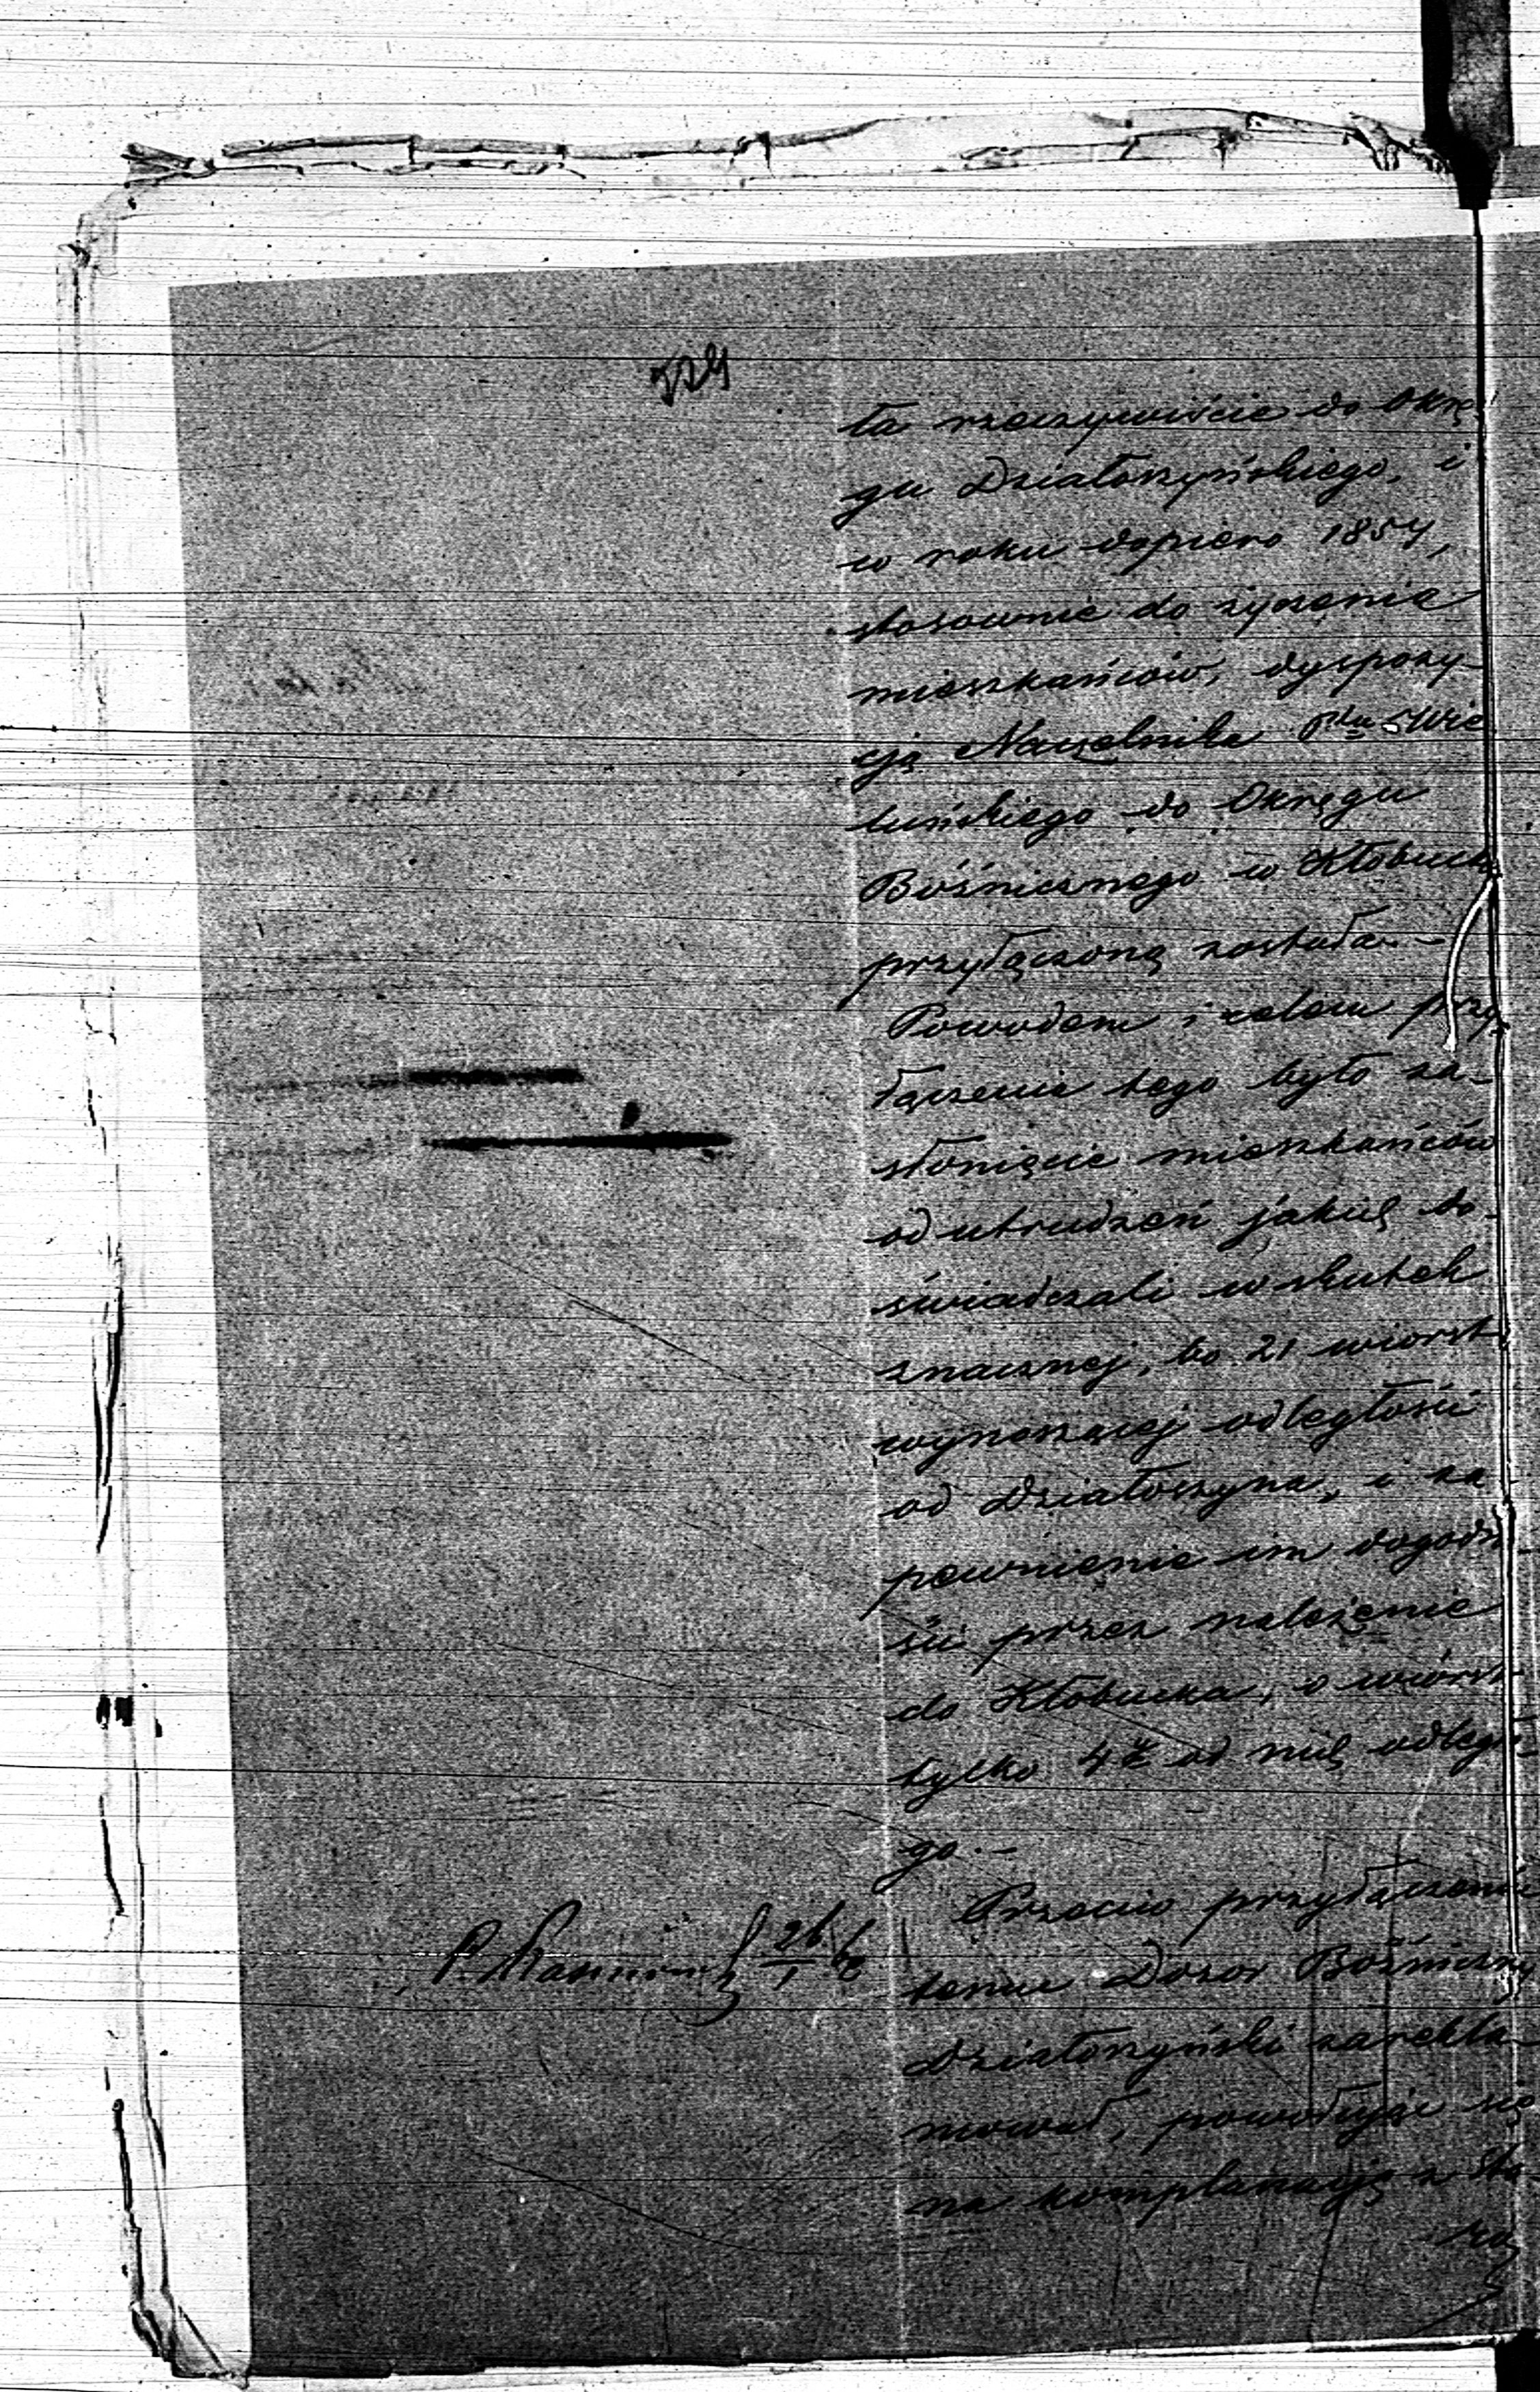 324
ła rzeczywiście do Okrę
gu Działoszyńskiego, i
w roku dopiero 1854,
stosownie do życzenia
mieszkańców, dyspozy-
cją Naczelnika Ptu Wie
luńskiego do Okręgu
Bóżnicznego w Kłobucku
przyłączoną została.-
Powodem i celem przy
łączenia tego było za-
słonięcie mieszkańców
od utrudzeń jakich do-
świadczali wskutek
znacznej, bo 21 wiorst
wynoszącej odległości
od Działoszyna, i za
pewnienie im dogodno
ści przez należenie
do Kłobucka, o wiorst
tylko 4 od nich odległe
go.-
Przeciw przyłączeniu
temu Dozór Bóżniczny
Działoszyński zarekla-
mował, powołując się
na komplanację z Sta